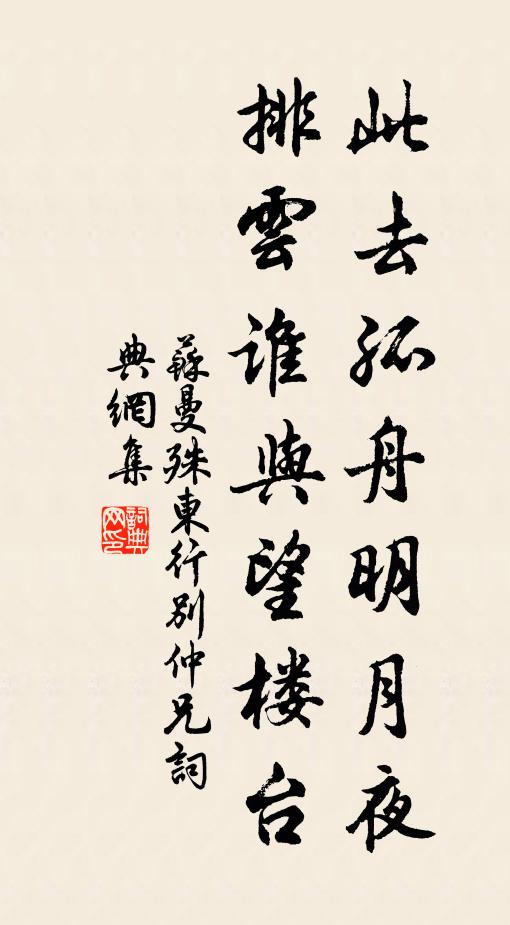 此去孤舟明月夜
排雲誰與望楼台
蘇曼殊東行別仲兄詞
典網集
詞典网印